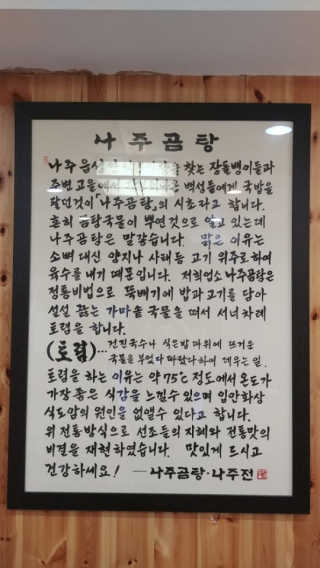 나주곰탕
나주읍성 찾는 장돌뱅이들과
주변 고을에서 백성들에게 국밥을
팔던것이 「나주곰탕」의 시초라고 합니다.
흔히 곰탕국물이 뿌연것으로 알고 있는데
나주곰탕은 말갛습니다. 맑은 이유는
소뼈 대신 양지나 사태등 고기 위주로하여
육수를 내기 때문입니다. 저희업소 나주곰탕은
정통비법으로 뚝배기에 밥과 고기를 담아
설설 끓는 가마솥 국물을 떠서 서너차례
토렴을 합니다.
(토렴)··· 건진국수나 식은밥 따위에 뜨거운
국물을 부었다 따랐다하여 데우는 일.
토렴을 하는 이유는 약 75℃ 정도에서 온도가
가장 좋은 식감을 느낄수 있으며 입안화상
식도암의 원인을 없앨수 있다고 합니다.
위 전통방식으로 선조들의 지혜와 전통맛의
비결을 재현하였습니다. 맛있게 드시고
건강하세요! ─ 나주곰탕·나주전